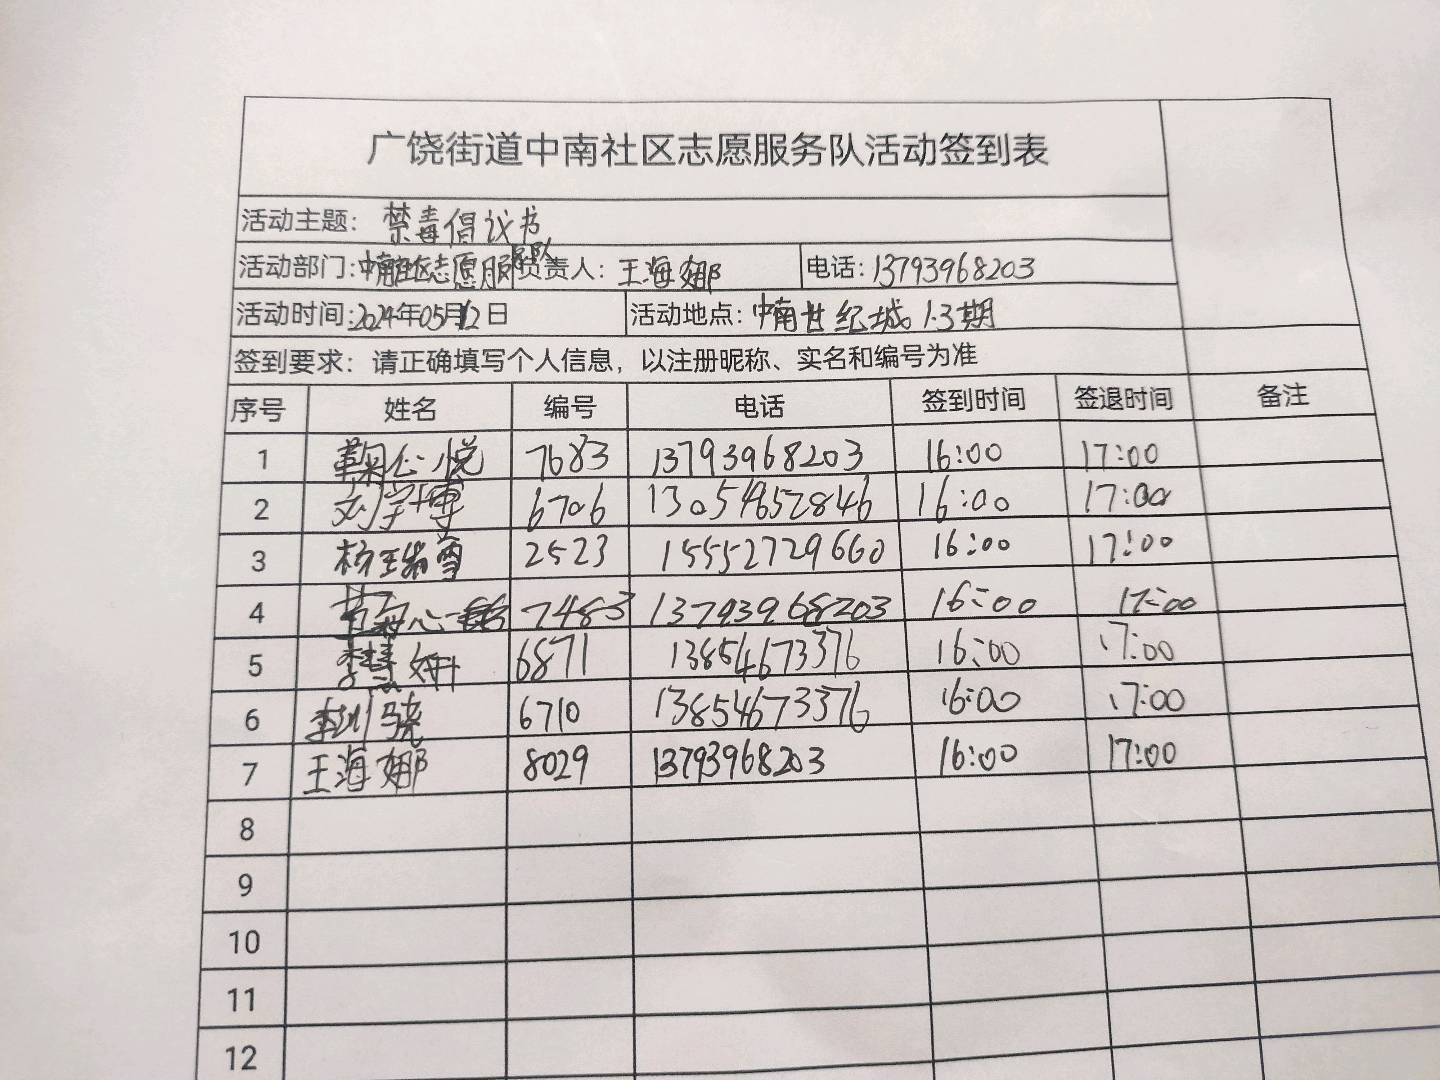 广饶街道中南社区志愿服务队活动签到表
活动主题：禁毒倡议书
活动部门：中南社区志愿服务队 负责人：王海娜 电话：13793968203
活动时间：2024年05月12日 活动地点：中南世纪城1.3期
签到要求：请正确填写个人信息，以注册昵称、实名和编号为准
序号 姓名 编号 电话 签到时间 签退时间 备注
1 鞠心悦 7683 13793968203 16:00 17:00
2 刘宇博 6706 13054652846 16:00 17:00
3 杨王瑞雪 2523 15552729660 16:00 17:00
4 7483 13793968203 16:00 17:00
5 李慧妍 6871 13854673376 16:00 17:00
6 李圳骁 6710 13854673376 16:00 17:00
7 王海娜 8029 13793968203 16:00 17:00
8
9
10
11
12